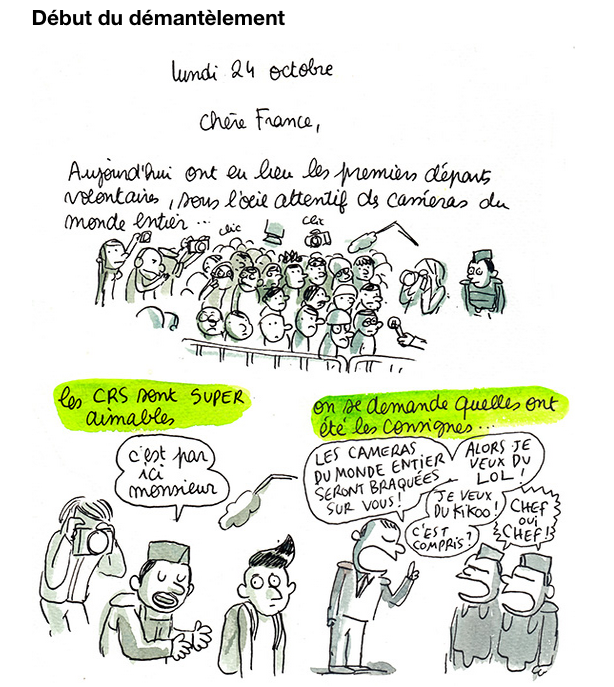 Début du démantèlement
lundi 24 octobre
Chère France,
Aujourd'hui ont eu lieu les premiers départs
volontaires, sous l'œil attentif de caméras du
monde entier...
clic
clic
les CRS sont SUPER
aimables
c'est par
ici
monsieur
on se demande quelles ont
été les consignes...
LES CAMERAS
DU MONDE ENTIER
SERONT BRAQUÉES
SUR VOUS!
ALORS JE
VEUX DU
LOL!
JE VEUX
DU KiKOO!
C'EST
COMPRIS?
CHEF
OUI
CHEF!